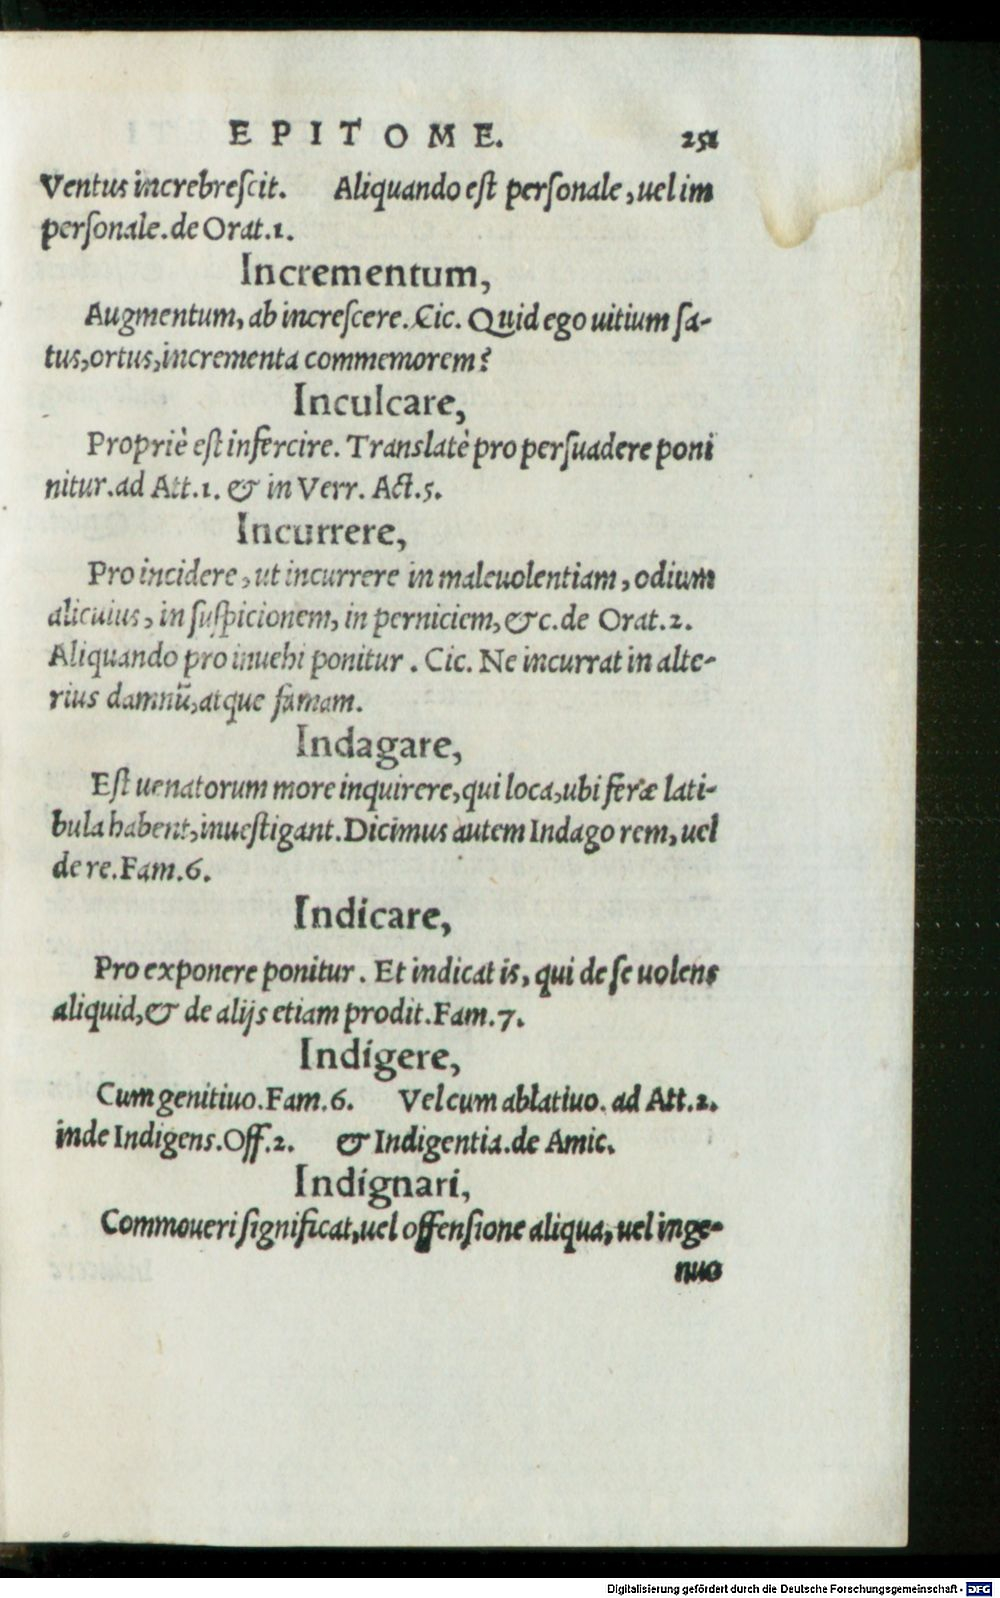 EPITOME. 251
Ventus increbreſcit. Aliquando eſt perſonale, uel im
perſonale. de Orat. 1.
Incrementum,
Augmentum, ab increſcere. Cic. Quid ego uitium ſa-
tus, ortus, incrementa commemorem?
Inculcare,
Propriè eſt infercire. Translatè pro perſuadere poni
nitur. ad Att. 1. & in Verr. Act. 5.
Incurrere,
Pro incidere, ut incurrere in maleuolentiam, odium
alicuius, in ſuſpicionem, in perniciem, &c. de Orat. 2.
Aliquando pro inuehi ponitur. Cic. Ne incurrat in alte-
rius damnū, atque famam.
Indagare,
Eſt uenatorum more inquirere, qui loca, ubi feræ lati-
bula habent, inueſtigant. Dicimus autem Indago rem, uel
de re. Fam. 6.
Indicare,
Pro exponere ponitur. Et indicat is, qui de ſe uolens
aliquid, & de alijs etiam prodit. Fam. 7.
Indigere,
Cum genitiuo. Fam. 6. Vel cum ablatiuo. ad Att. 2.
inde Indigens. Off. 2. & Indigentia. de Amic.
Indignari,
Commoueri ſignificat, uel offenſione aliqua, uel inge-
nuo
Digitalisierung gefördert durch die Deutsche Forschungsgemeinschaft - DFG